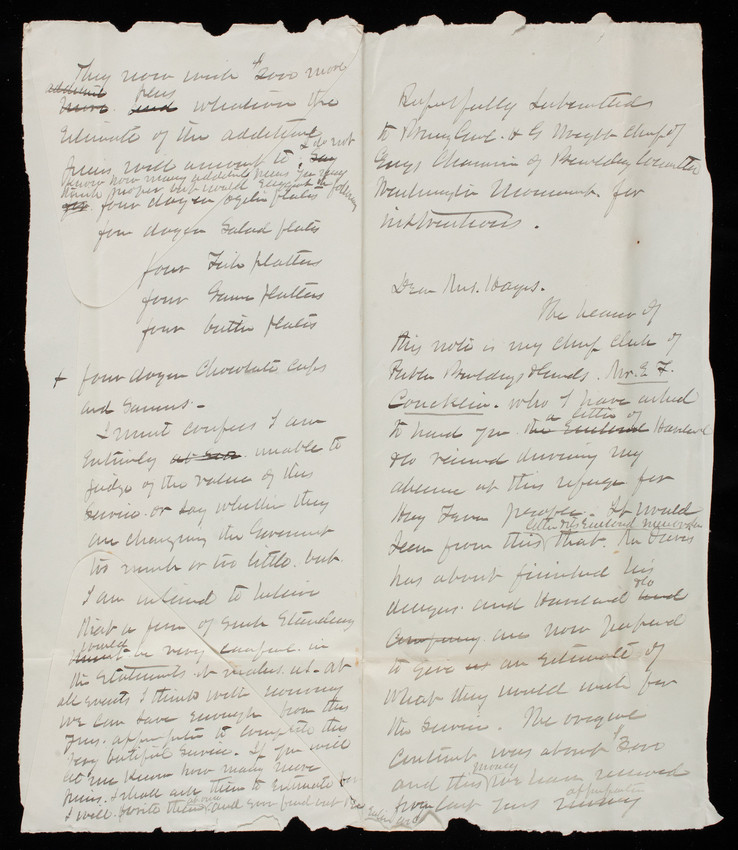 Respectfully submitted
to Brig Genl. H G Wright Chief of
Engs Chairman of Building Committee
Washington Monument. for
instructions.
Dear Mrs. Hayes.
The bearer of
this note is my Chief Clerk of
Public Buildings & Grounds. Mr. E. F.
Concklin. who I have asked
to hand you the enclosed a letter of Haviland
& Co received during my
absence at this refuge for
Hay Fever people. It would
seem from this letter that Mr Davis
has about finished his
designs. and Haviland and & Co
Company are now prepared
to give us an estimate of
what they would wish for
the service. The original
contract was about $3000
and this money we have reserved
from last years money appropriation
They now wish $2000 more
additional plus
more and whatever the
estimate of the additional
pieces will amount to. I do not
know how many additional pieces you may
think proper but would suggest the following
four dozen oyster plates
four dozen Salad plates
four Fish platters
four Game platters
four butter plates
+ four dozen Chocolate Cups
and Saucers.-
I must confess I am
entirely unable to
judge of the value of this
service or say whether they
are charging the Government
too much or too little. but
I am inclined to believe
that a firm of such standing
would be very careful in
the statements it makes us. at
all events I think with economy
we can save enough from this
years. appropriation to complete this
very beautiful service. If you will
let me know how many more
pieces. I shall ask them to estimate for
I will write them and find out